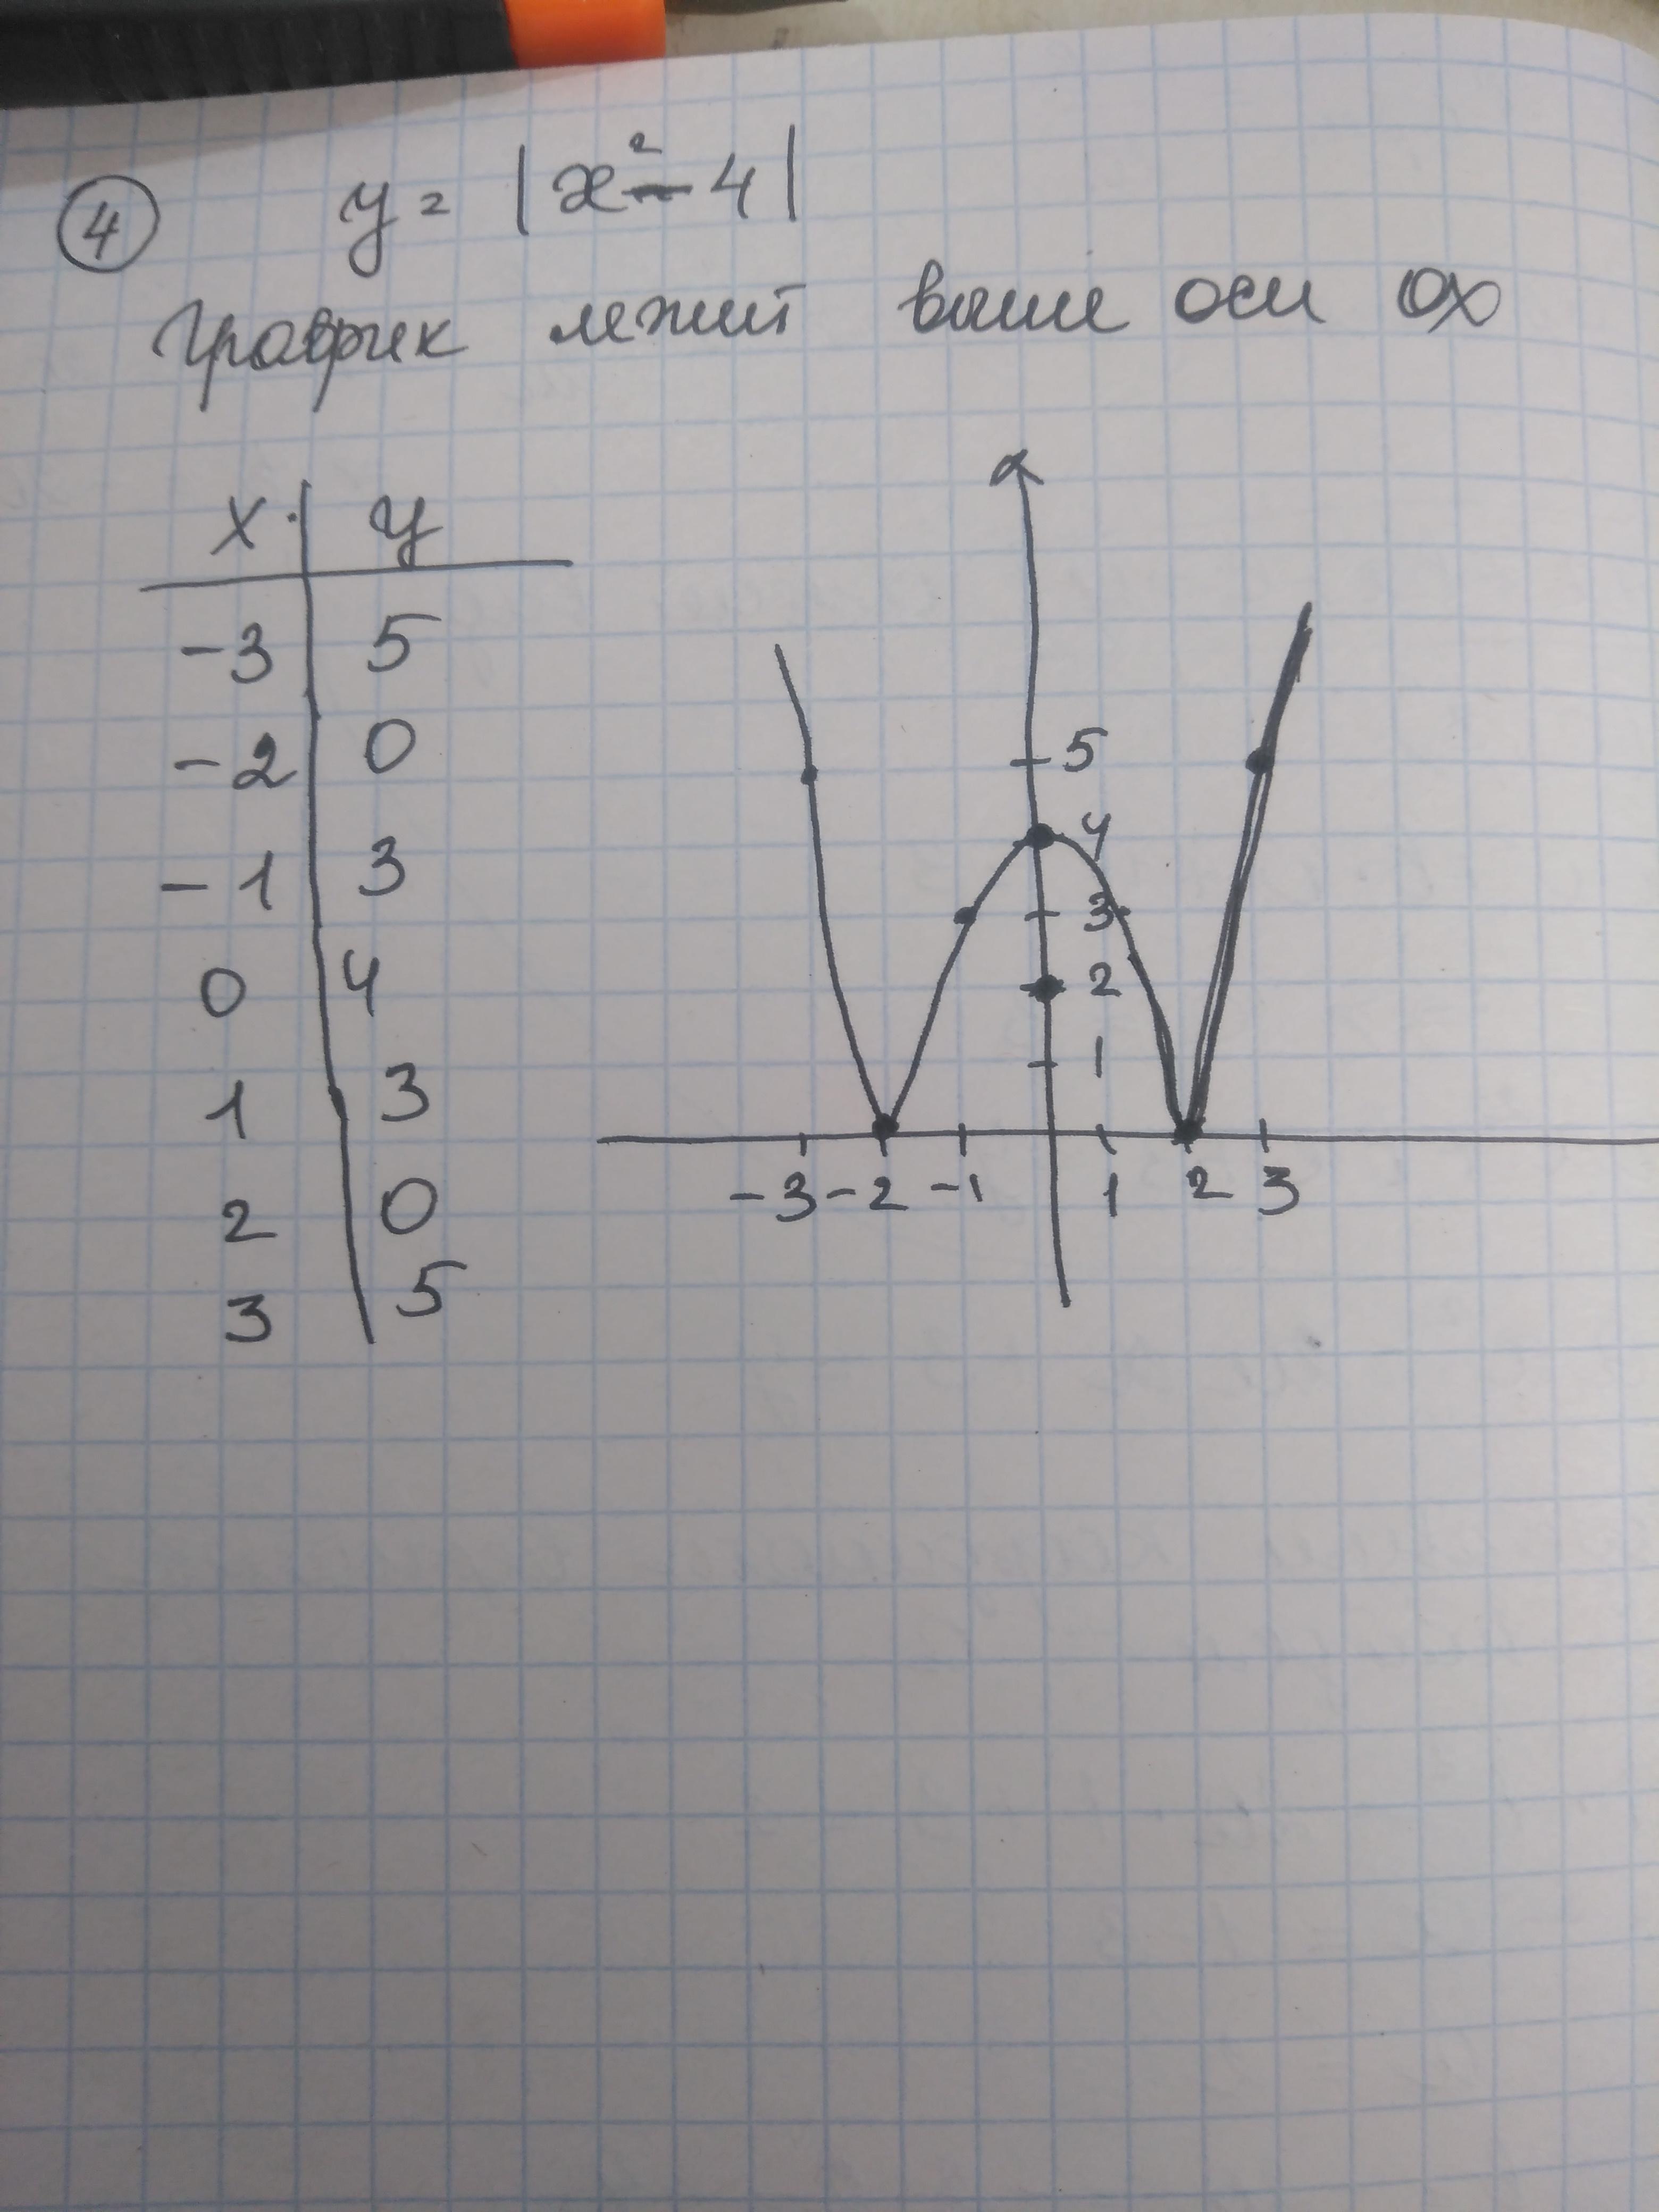 4 y = |x² - 4|
График лежит выше оси OX
x y
-3 5
-2 0
-1 3
0 4
1 3
2 0
3 5
5
4
3
2
1
-3 -2 -1 1 2 3